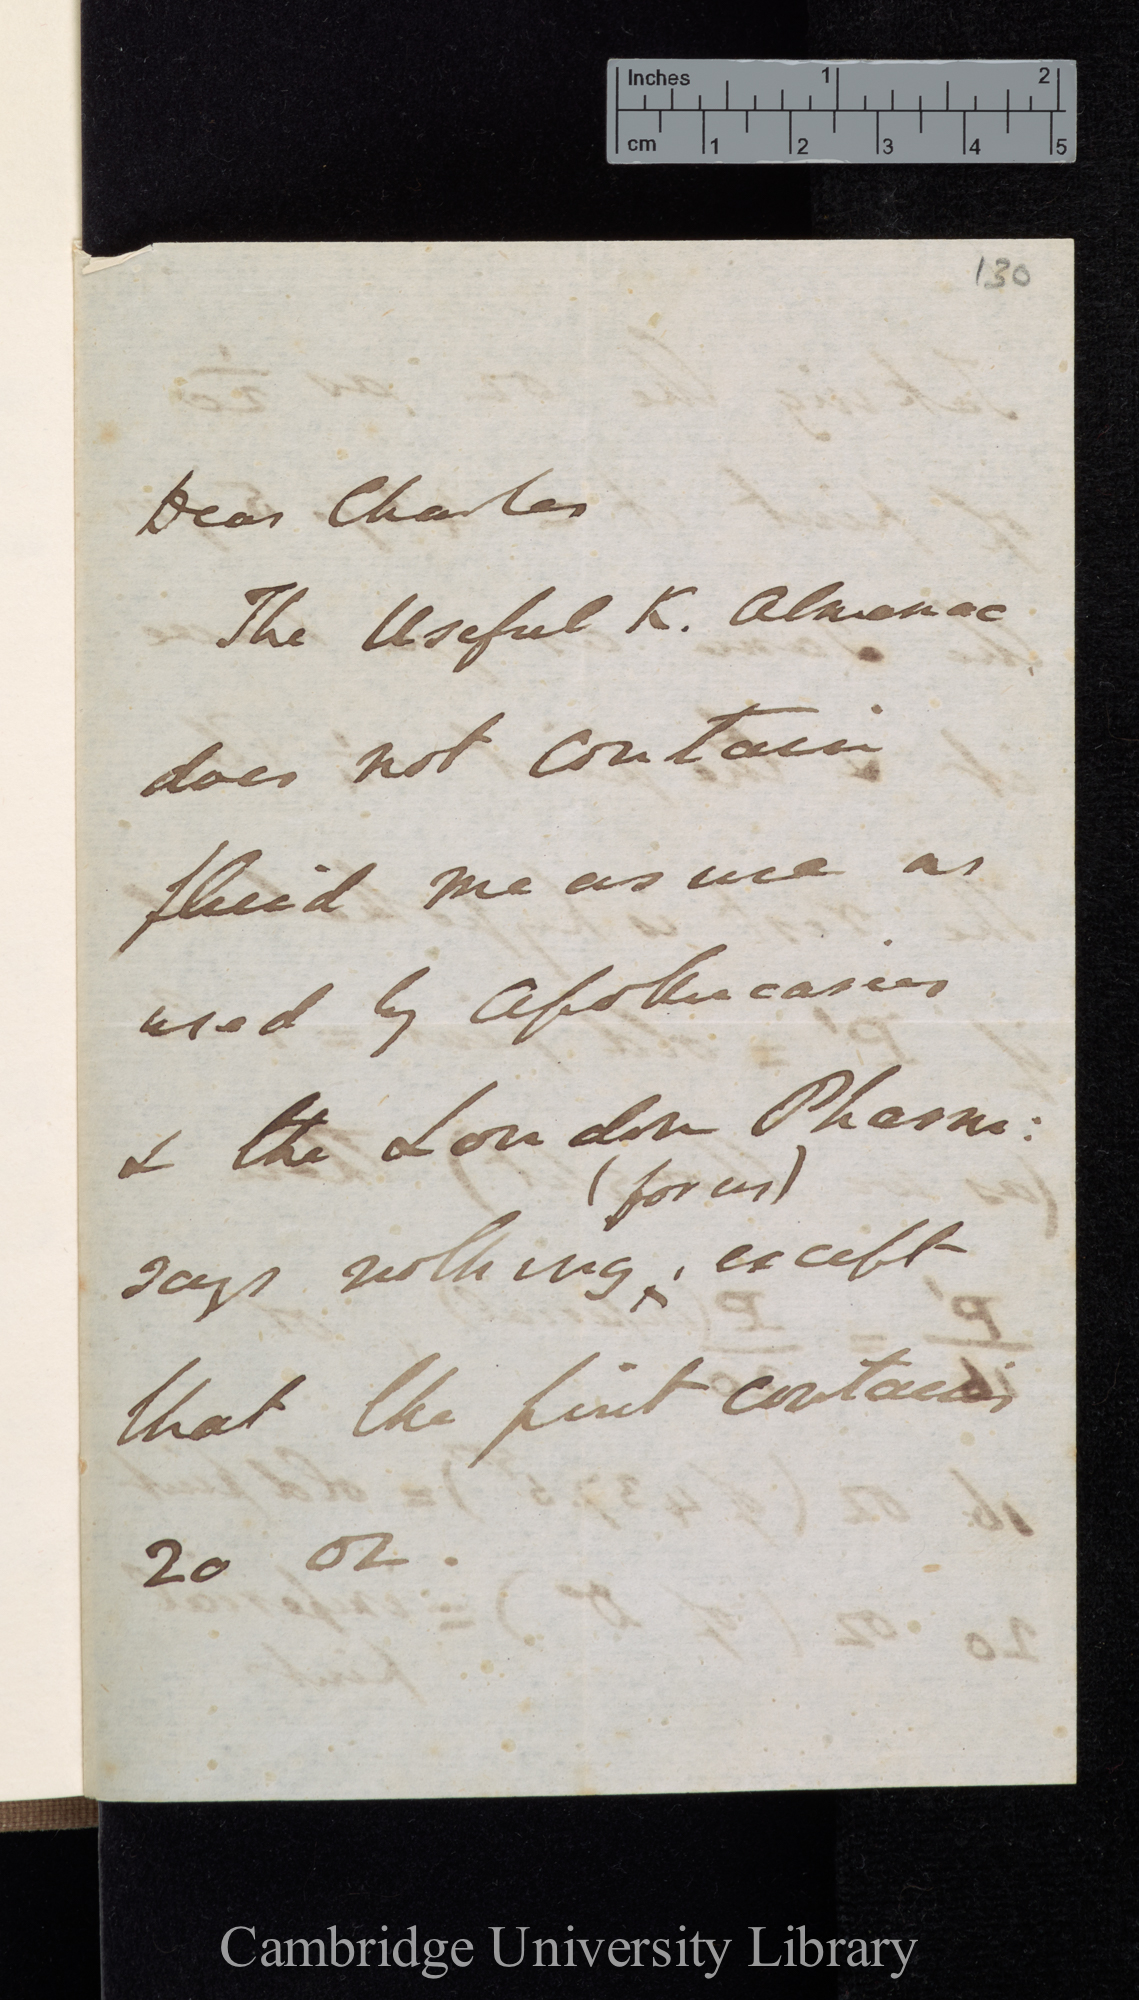 Inches 1 2
cm 1 2 3 4 5
130
Dear Charles
The Useful K. Almanac
does not contain
fluid measure as
used by Apothecaries
& the London Pharm:
(for us)
says nothing ^, except
that the pint contains
20 oz.
Cambridge University Library